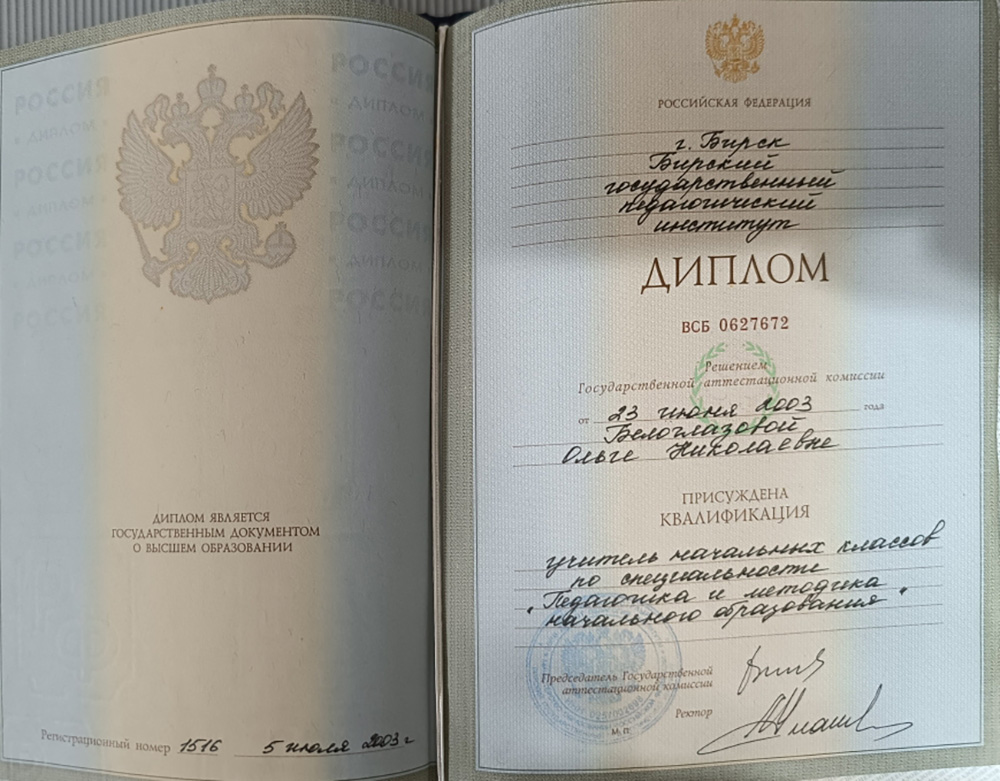 РОССИЯ
ДИПЛОМ
РОССИЯ
ДИПЛОМ
РОССИЯ
ДИПЛОМ
РОССИЯ
РОССИЯ
ДИПЛОМ
РОССИЯ
ДИПЛОМ
РОССИЯ
ДИПЛОМ
РОССИЯ
ДИПЛОМ ЯВЛЯЕТСЯ
ГОСУДАРСТВЕННЫМ ДОКУМЕНТОМ
О ВЫСШЕМ ОБРАЗОВАНИИ
Регистрационный номер 1516 5 июля 2003 г
РОССИЙСКАЯ ФЕДЕРАЦИЯ
г. Бирск
Бирский
государственный
педагогический
институт
ДИПЛОМ
ВСБ 0627672
Решением
Государственной аттестационной комиссии
от 23 июня 2003 года
Белоглазовой
Ольге Николаевне
ПРИСУЖДЕНА
КВАЛИФИКАЦИЯ
учитель начальных классов
по специальности
"Педагогика и методика
начального образования"
Председатель Государственной
аттестационной комиссии
Ректор
М. П.